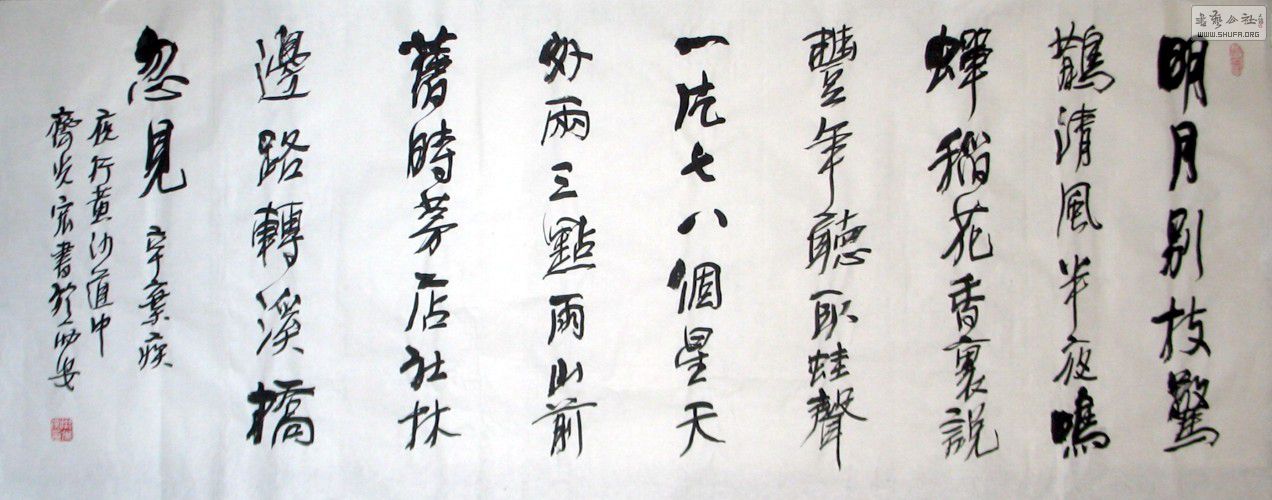 明月別枝驚
鵲清風半夜鳴
蟬稻花香裏説
豐年聽取蛙聲
一片七八個星天
外兩三點雨山前
舊時茅店社林
邊路轉溪橋
忽見 辛棄疾
夜行黃沙道中
齊宏書於西安
书艺公社
WWW.SHUFA.ORG